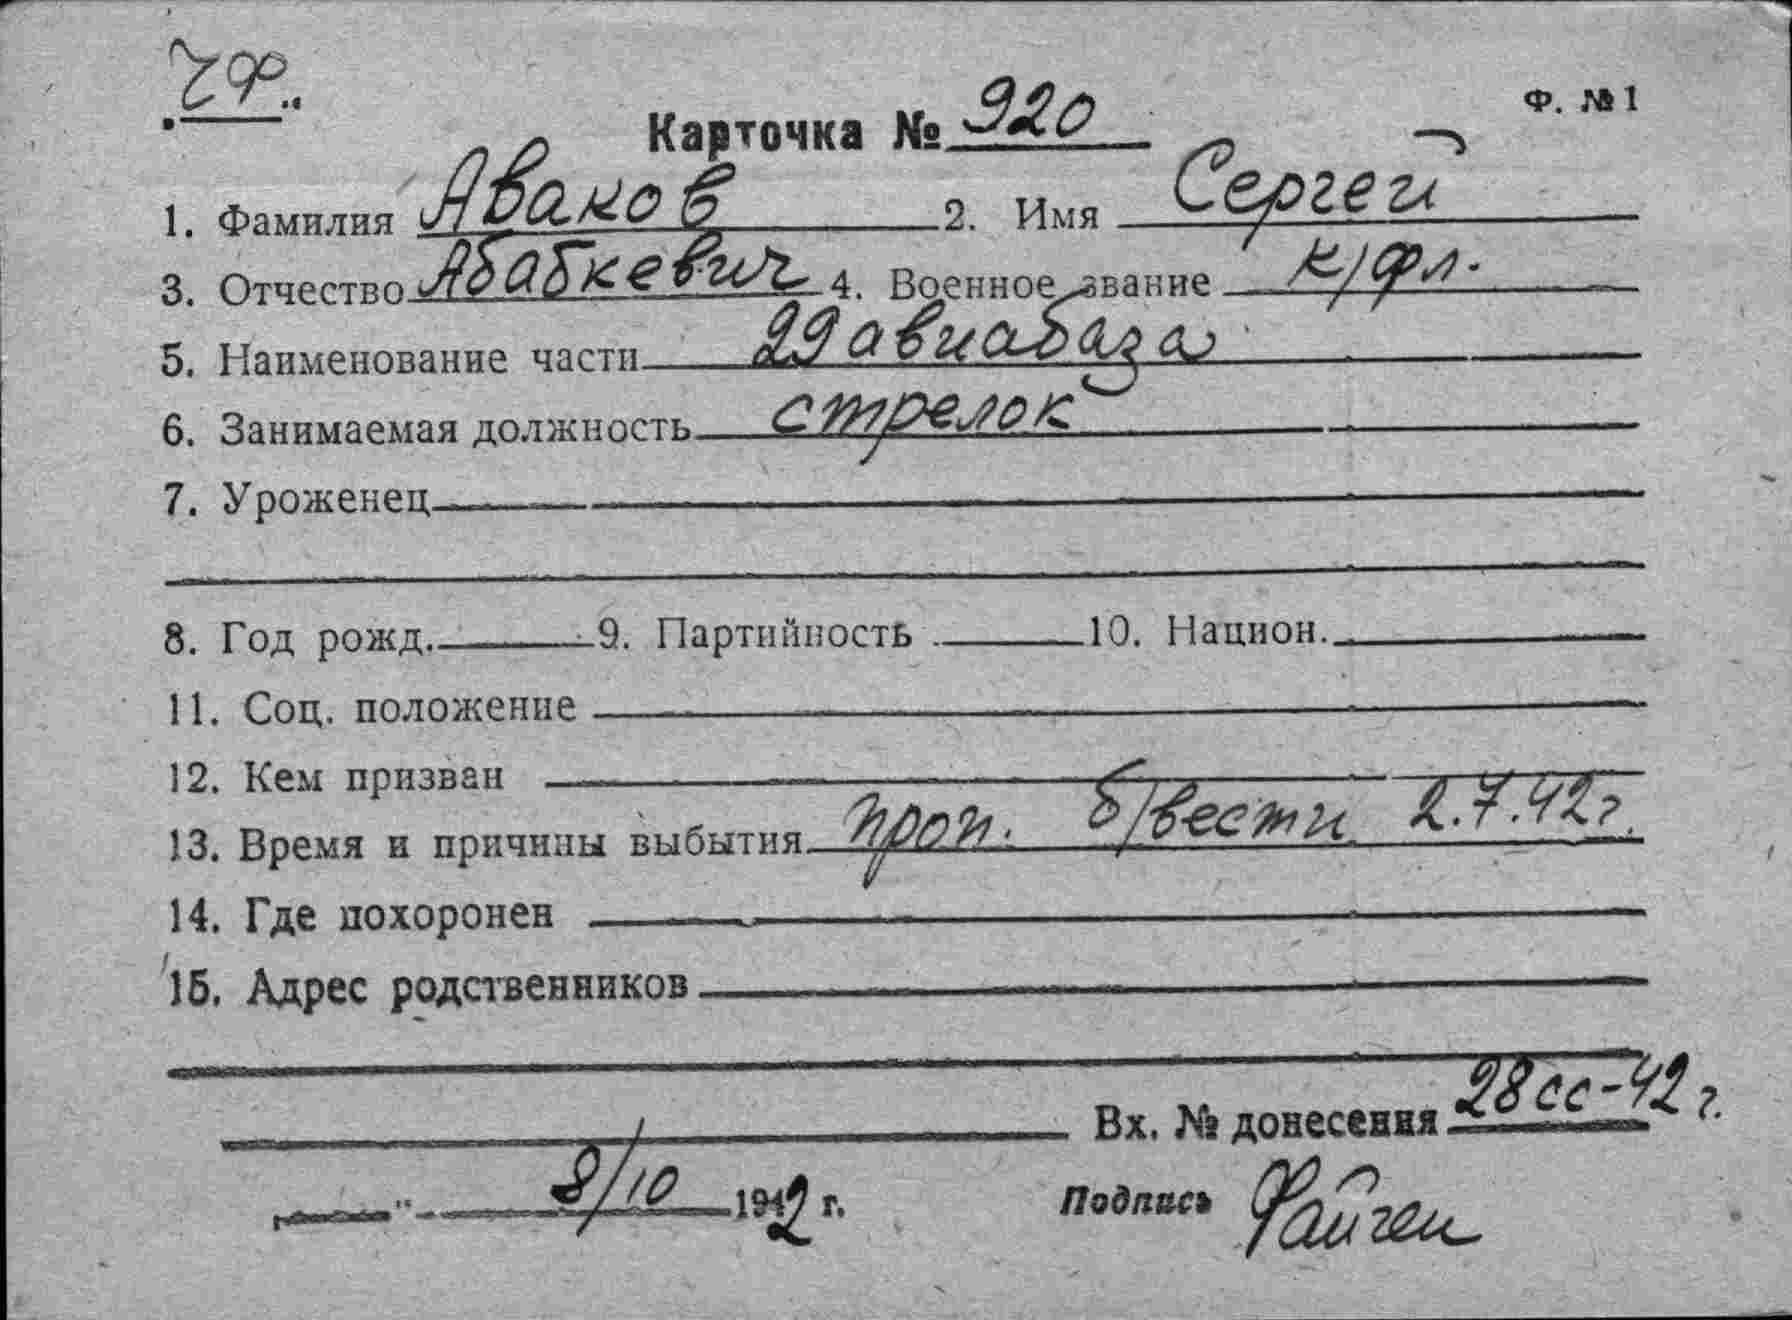 ЧФ.
Ф. № 1
Карточка № 920
1. Фамилия Аваков 2. Имя Сергей
3. Отчество Абабкевич 4. Военное звание к/фл.
5. Наименование части 29 авиабаза
6. Занимаемая должность стрелок
7. Уроженец
8. Год рожд. 9. Партийность 10. Национ.
11. Соц. положение
12. Кем призван
13. Время и причины выбытия проп. б/вести 2.7.42г.
14. Где похоронен
15. Адрес родственников
Вх. № донесения 28сс-42 г.
" 8/10 1942 г. Подпись